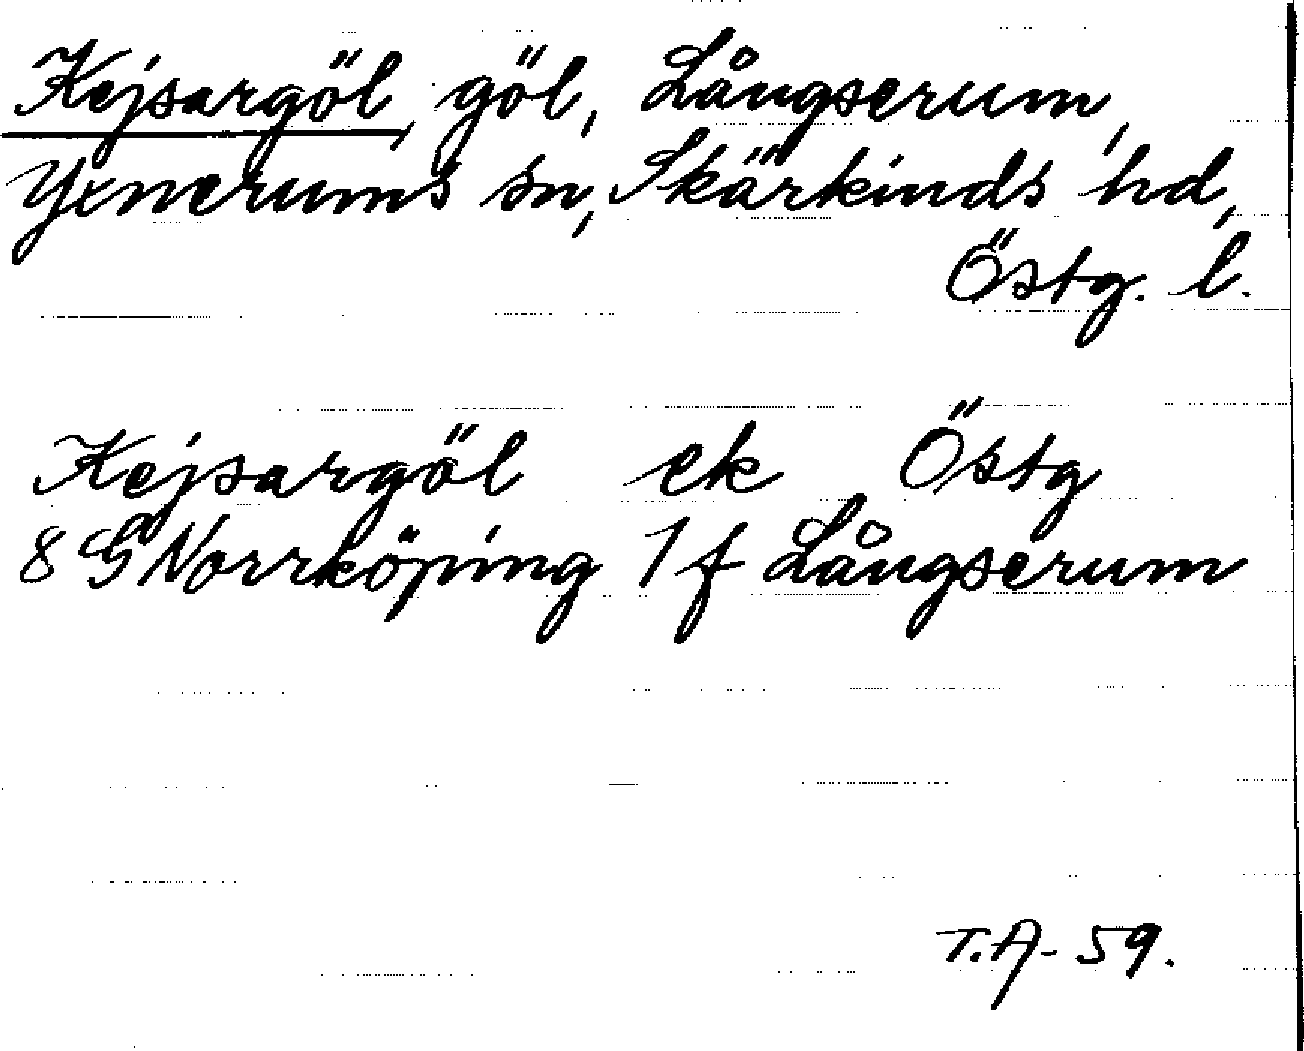 Kejsargöl, göl, Långserum,
Yxnerums sn, Skärkinds hd,
Östg. l.
Kejsargöl ek Östg
8 G Norrköping 1 f Långserum
T.A- 59.